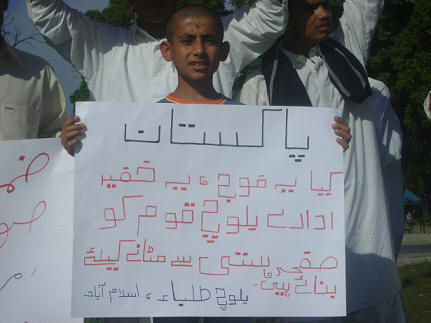 پاکستان
کیا یہ فوج ، یہ خفیہ
ادارے بلوچ قوم کو
ہستی سے مٹانے کیلئے
بنائے ہیں۔
بلوچ طلباء ، اسلام آباد